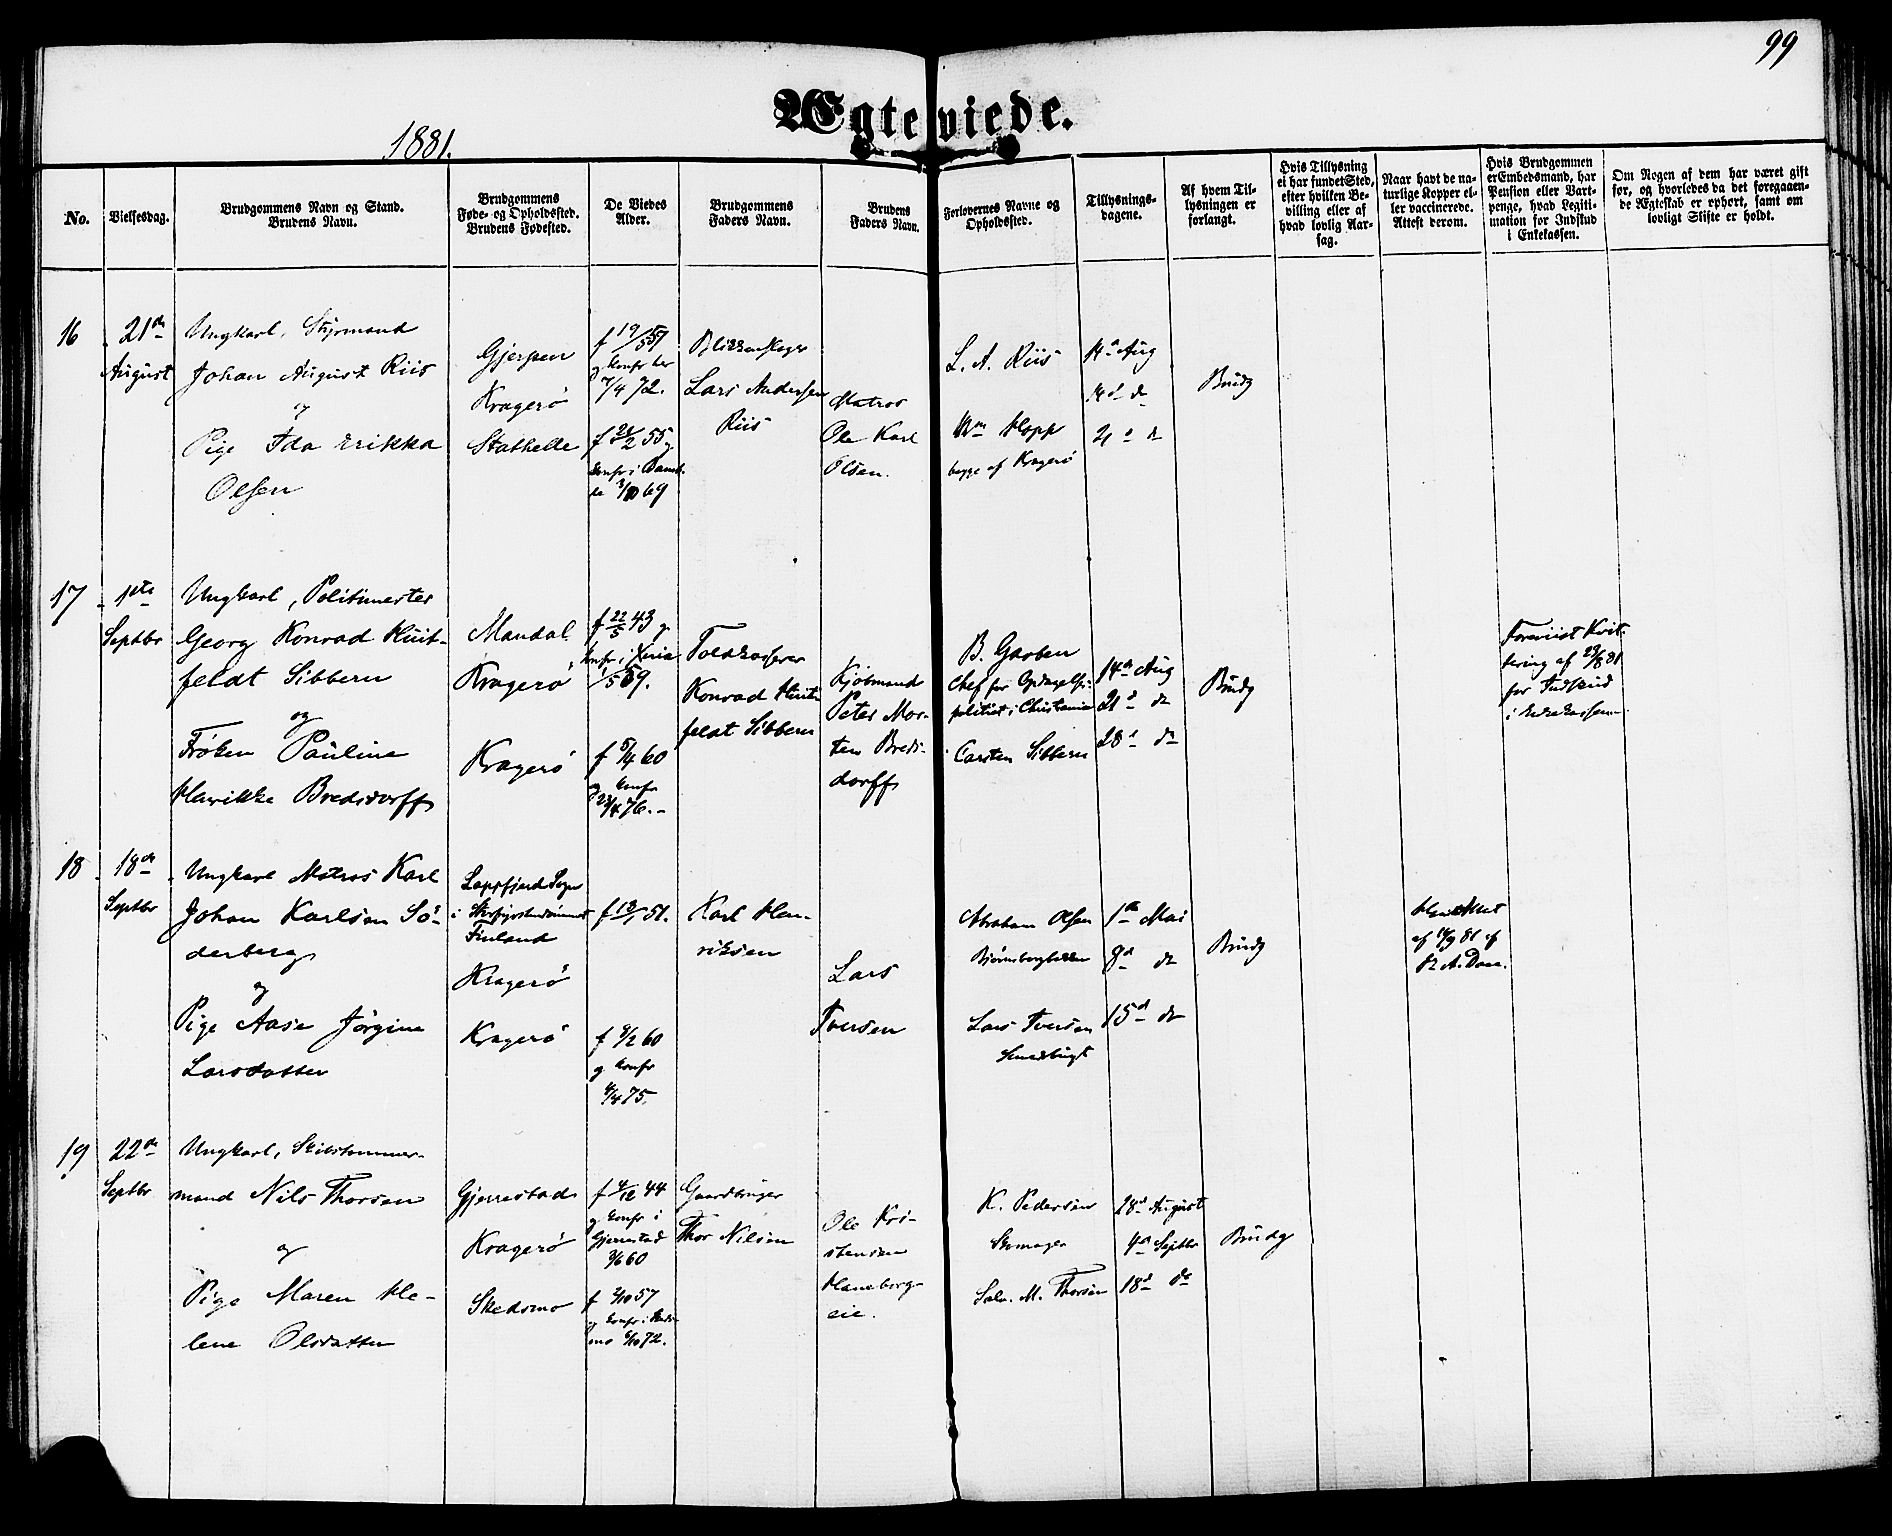 99
Ægteviede.
1881.
No.
Vielsesdag.
Brudgommens Navn og Stand.
Brudens Navn.
Brudgommens
Føde- og Opholdssted.
Brudens Fødested.
De Viedes
Alder.
Brudgommens
Faders Navn.
Brudens
Faders Navn.
Forlovernes Navne og
Opholdssted.
Tillysnings-
dagene.
Af hvem Til-
lysningen er
forlangt.
Hvis Tillysning
ei har fundet Sted,
efter hvilken Be-
villing eller af
hvad lovlig Aar-
sag.
Naar havt de na-
turlige Kopper el-
ler vaccinerede.
Attest derom.
Hvis Brudgommen
er Embedsmand, har
Pension eller Vart-
penge, hvad Legiti-
mation for Indskud
i Enkekassen.
Om Nogen af dem har været gift
før, og hvorledes da det foregaaen-
de Ægteskab er ophørt, samt om
lovligt Skifte er holdt.
16
21de
August
Ungkarl, Styrmand
Johan August Riis
og
Pige Ida Erikka
Olsen
Gjerpen
Kragerø
Stathelle
og Konfr her
7/4 72.
Lars Andersen
Riis
Matros
Ole Karl
Olsen.
L. A. Riis
begge af Kragerø
14d Aug
14d do
21d do
Brudg
17
1ste
Septbr
Ungkarl, Politimester
Georg Konrad Huit-
feldt Sibbern
og
Frøken Pauline
Henrikke Bredsdorff
Mandal
Kragerø
Kragerø
f 22/5 43 og
f 5/4 60
og Konfr
23/4 76.-
Toldkasserer
Konrad Huit-
feldt Sibbern
Kjøbmand
Peter Mor-
ten Breds-
dorff
B. Garben
Chef for Opdagelses-
politiet i Christiania
Carsten Sibbern
14d Aug
21d do
28d do
Brudg
Foreviist Kvit-
tering af 23/8 81
for Indskud
i Enkekassen.
18
18de
Septbr
Ungkarl Matros Karl
Johan Karlsen Sö-
derberg
og
Pige Aase Jørgine
Larsdatter
Lappfjerd Sogn
Finland
Kragerø
Kragerø
f 13/1 51.
f 8/2 60
og Konfr
4/4 75.
Karl Hen-
riksen
Lars
Iversen
Abraham Olsen
Lars Iversen
Smedsbugt
1ste Mai
8d do
15d do
Brudg
19
22de
Septbr
Ungkarl, Skibstømmer-
mand Nils Thorsen
og
Pige Maren He-
lene Olsdatter
Gjerrestad
Kragerø
Skedsmo
f 4/12 44
og Konfr i
Gjerrestad
Gaardbruger
Thor Nilsen
Ole Kri-
stensen
Haneborg-
eie.
K. Pedersen
Skomager
Salv. M. Thorsen
28d August
4d Septbr
18d do
Brudg